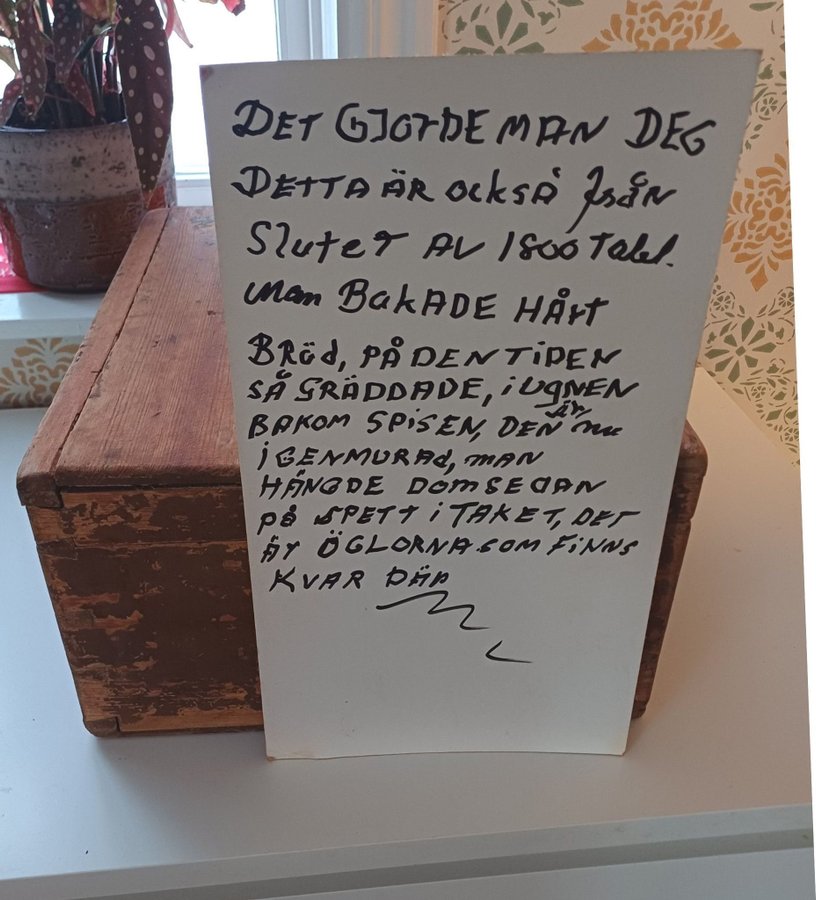 DET GJORDE MAN DEG
DETTA ÄR OCKSÅ från
Slutet AV 1800 Talet.
Man BAKADE HÅRT
BRöd, PÅ DEN TIDEN
SÅ GRÄDDADE, i UGNEN
BAKOM SPISEN, DEN är nu
IGENMURAd, MAN
HÄNGDE DOM SEDAN
PÅ SPETT i TAKET, DET
ÄR ÖGLORNA SOM FINNS
KVAR DÄR